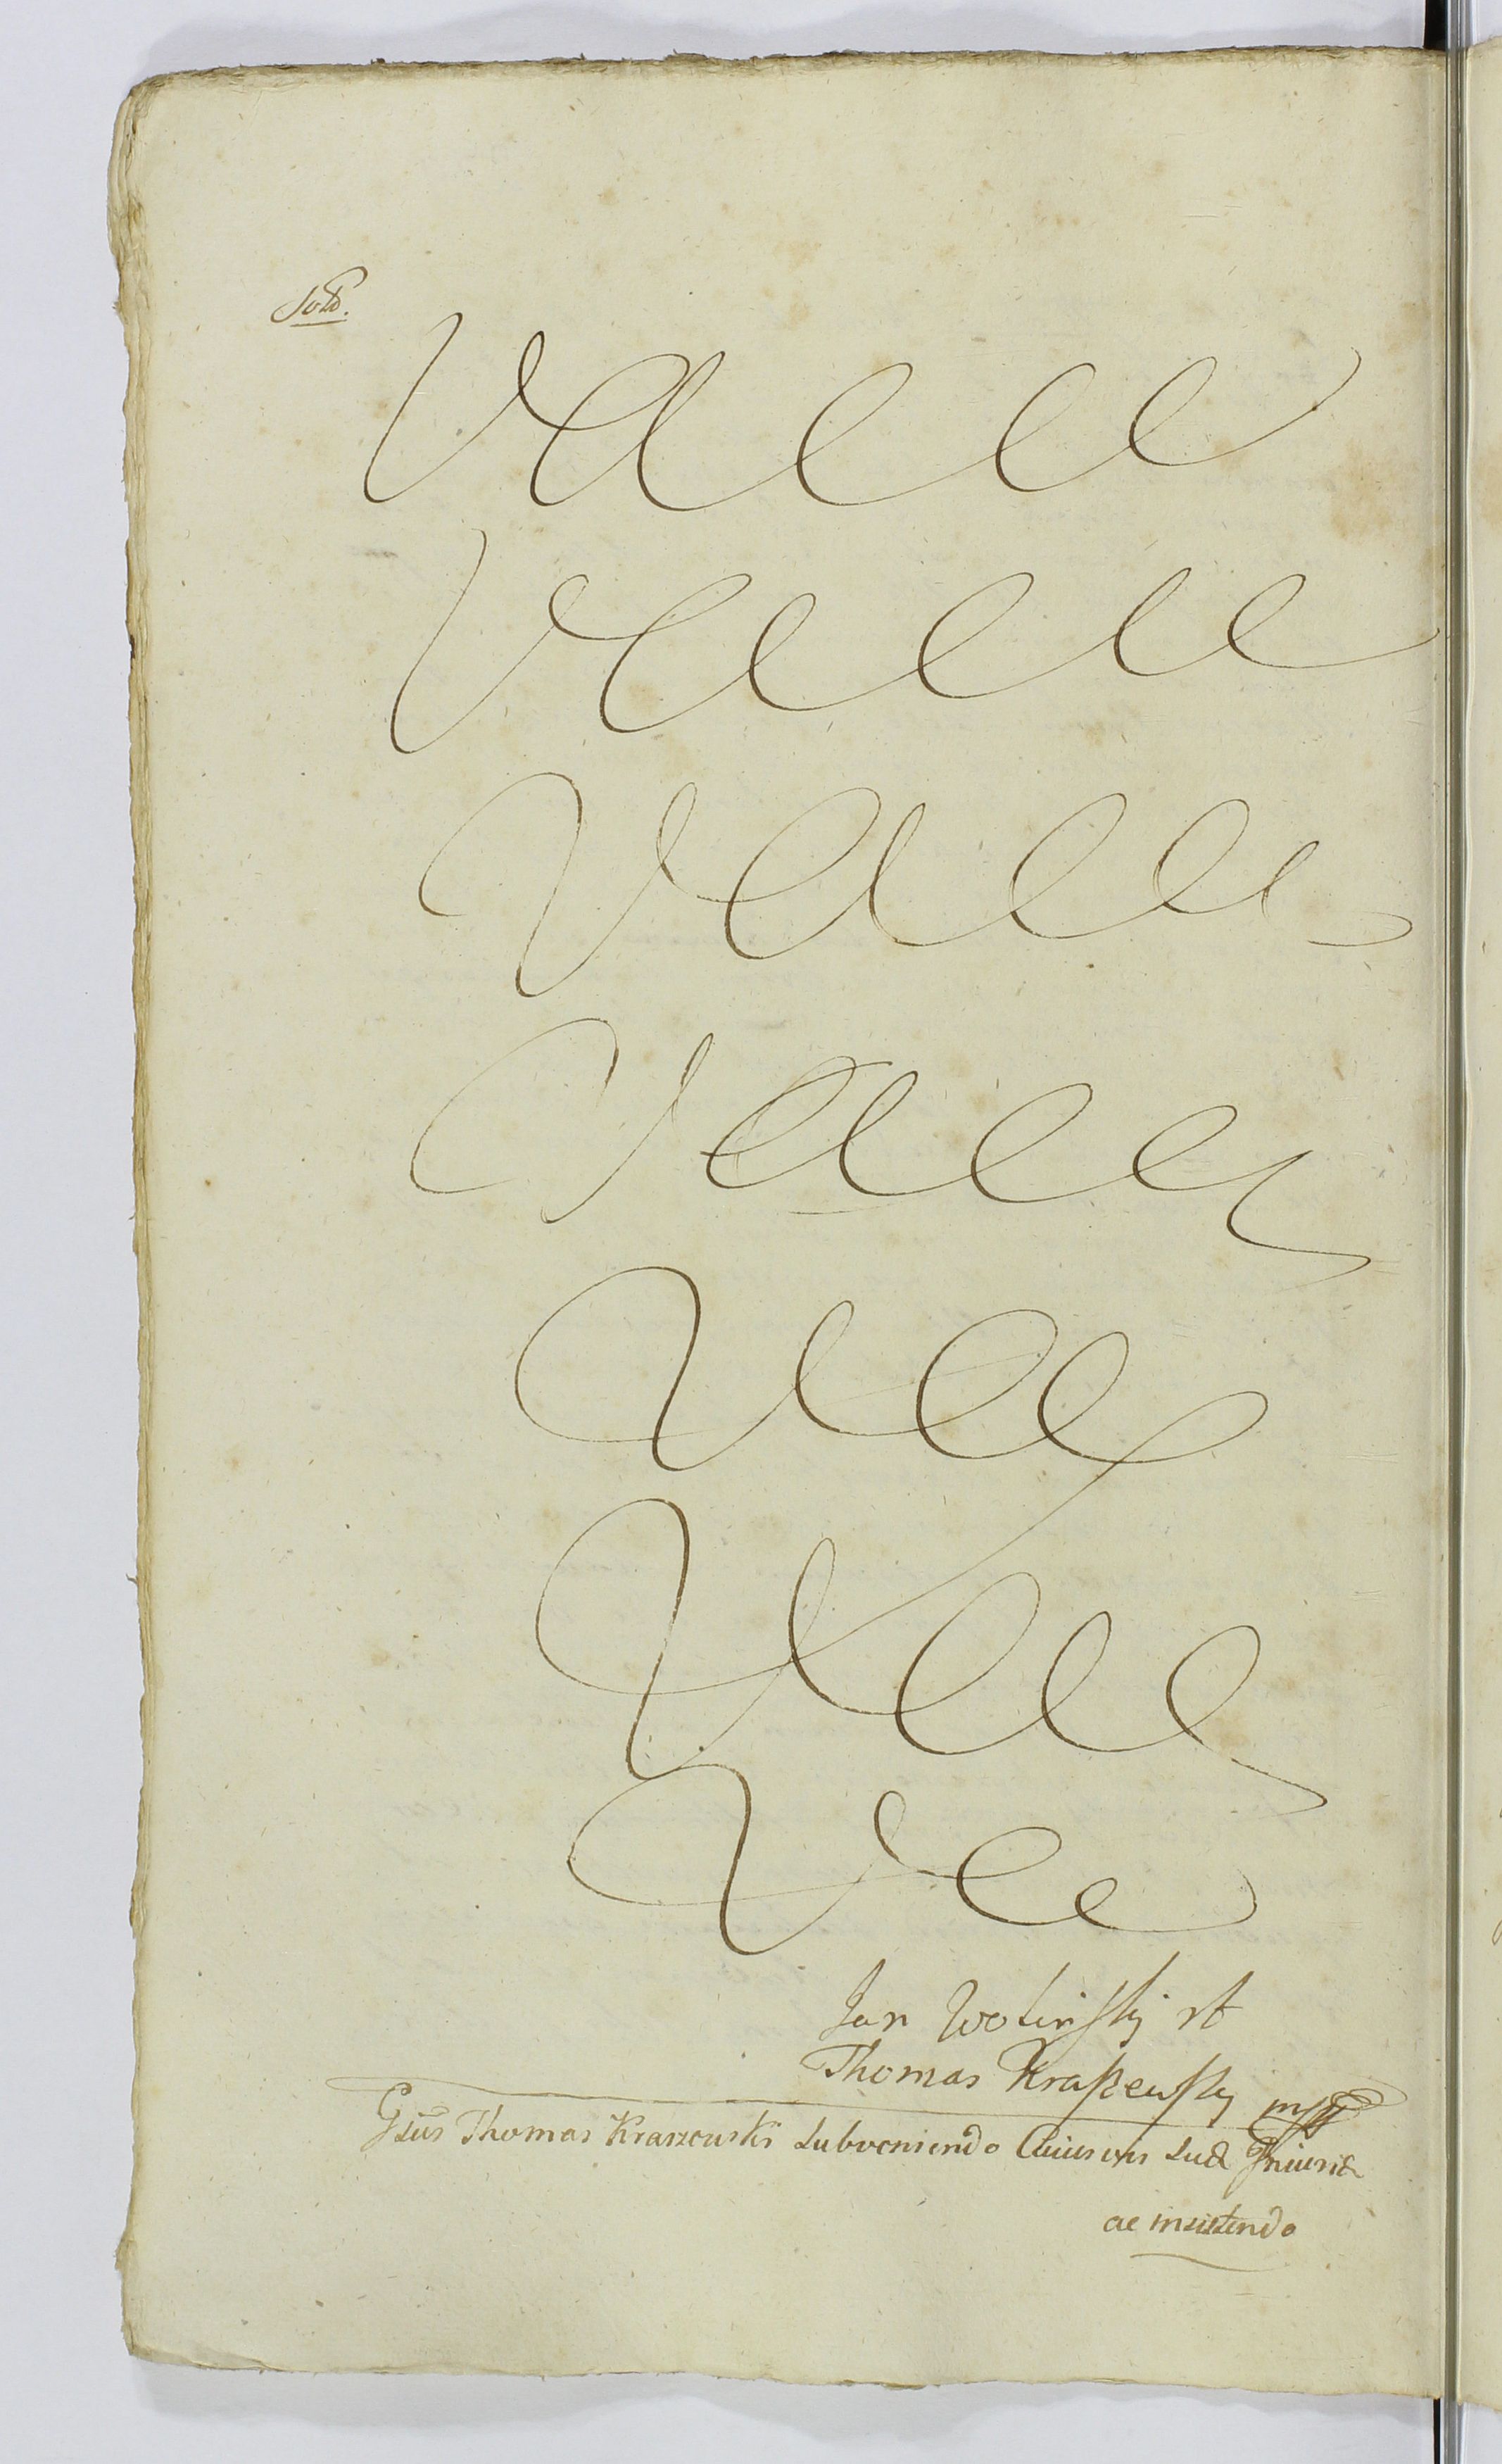 Solt.
Jan Wolinsky rt
Thomas Kraszewsky mpp
Gsus Thomas Kraszewski subveniendo suæ Iniuriæ
ac insistendo